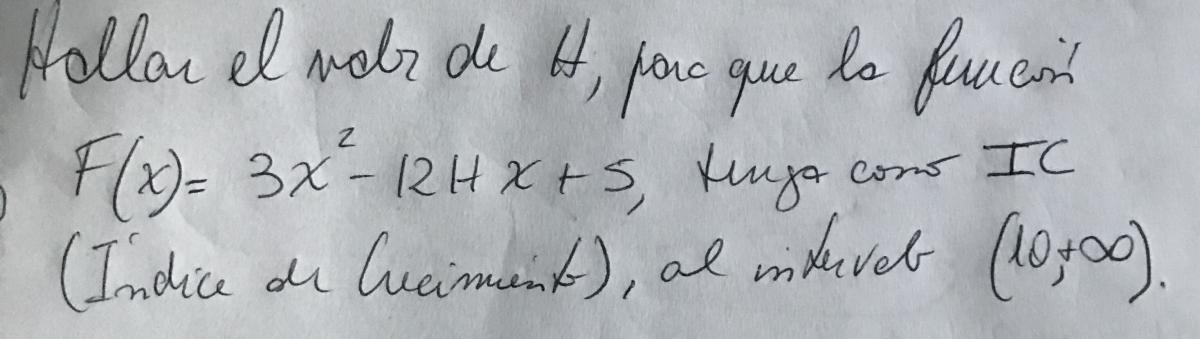 Hallar el valor de H, para que la función
F(x)= 3x² - 12Hx + 5, tenga como IC
(Índice de Crecimiento), al intervalo (10,+∞).